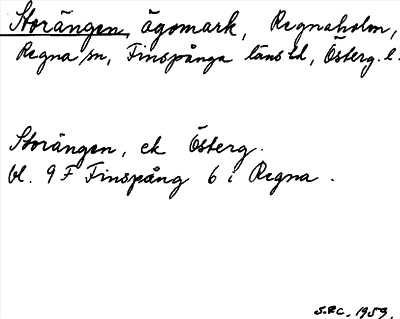 Storängen, ägomark, Regnaholm,
Regna sn, Finspånga läns hd, Österg. l.
Storängen, ek Österg.
bl. 9 F Finspång 6 i Regna.
S.R.C. 1959.